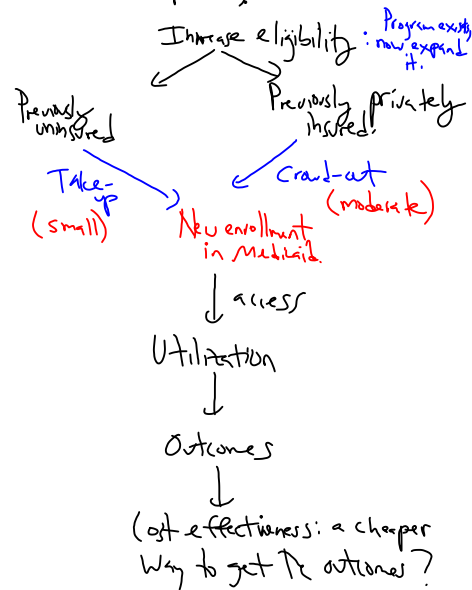 Increase eligibility : Program exists,
now expand
it.
Previously
uninsured
Previously privately
insured.
Take-
up
(small)
Crowd-out
(moderate)
New enrollment
in Medicaid.
access
Utilization
Outcomes
Cost effectiveness: a cheaper
way to get outcomes?